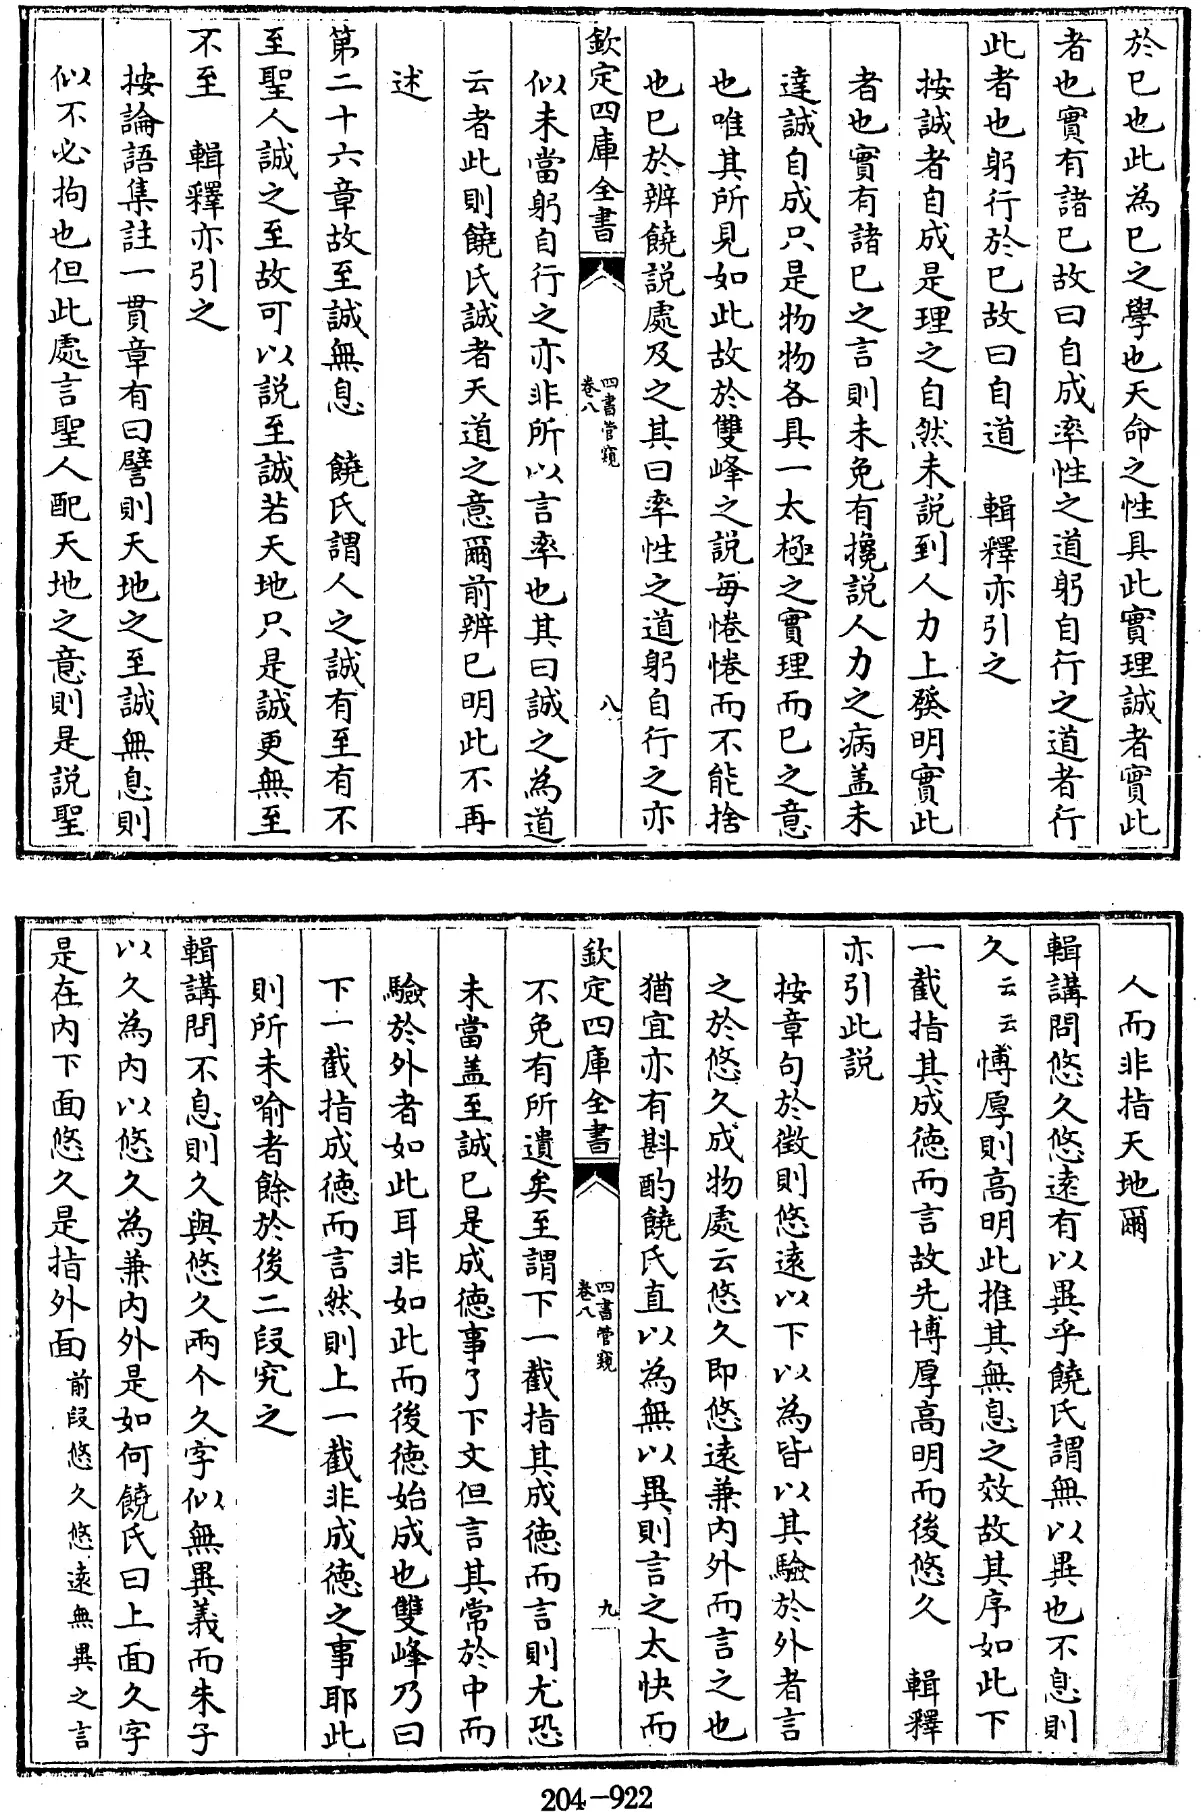 於已也此為已之學也天命之性具此實理誠者實此
者也實有諸已故曰自成率性之道躬自行之道者行
此者也躬行於已故曰自道　輯釋亦引之
按誠者自成是理之自然未説到人力上發明實此
者也實有諸已之言則未免有攙説人力之病盖未
達誠自成只是物物各具一太極之實理而已之意
也唯其所見如此故於雙峰之説每惓惓而不能捨
也已於辨饒説處及之其曰率性之道躬自行之亦
欽定四庫全書
四書管窺
卷八
八
似未當躬自行之亦非所以言率也其曰誠之為道
云者此則饒氏誠者天道之意爾前辨已明此不再
述
第二十六章故至誠無息　饒氏謂人之誠有至有不
至聖人誠之至故可以説至誠若天地只是誠更無至
不至　輯釋亦引之
按論語集註一貫章有曰譬則天地之至誠無息則
似不必拘也但此處言聖人配天地之意則是説聖
人而非指天地爾
輯講問悠久悠遠有以異乎饒氏謂無以異也不息則
久云云博厚則高明此推其無息之效故其序如此下
一截指其成徳而言故先博厚高明而後悠久　輯釋
亦引此説
按章句於徴則悠遠以下以為皆以其驗於外者言
之於悠久成物處云悠久即悠遠兼内外而言之也
猶宜亦有斟酌饒氏直以為無以異則言之太快而
欽定四庫全書
四書管窺
卷八
九
不免有所遺矣至謂下一截指其成徳而言則尤恐
未當盖至誠已是成徳事了下文但言其常於中而
驗於外者如此耳非如此而後徳始成也雙峰乃曰
下一截指成徳而言然則上一截非成徳之事耶此
則所未喻者餘於後二段究之
輯講問不息則久與悠久兩个久字似無異義而朱子
以久為内以悠久為兼内外是如何饒氏曰上面久字
是在内下面悠久是指外面前段悠久悠遠無異之言
204-922